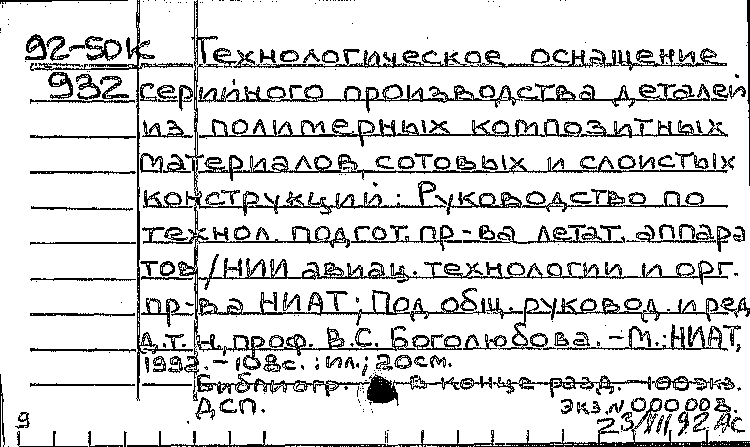 92-5DK Технологическое оснащение
932 серийного производства деталей
из полимерных композитных
материалов, сотовых и слоистых
конструкций: Руководство по
технол. подгот. пр-ва летат. аппара
тов/НИИ авиац. технологии и орг.
пр-ва НИАТ; Под общ. руковод. и ред
д.т.н., проф. В.С. Боголюбова. -М.: НИАТ,
1992. - 108с. : ил.; 20см.
Библиогр. в конце разд. 100экз.
ДСП. экз. N 000008.
9 23/VII,92 АС